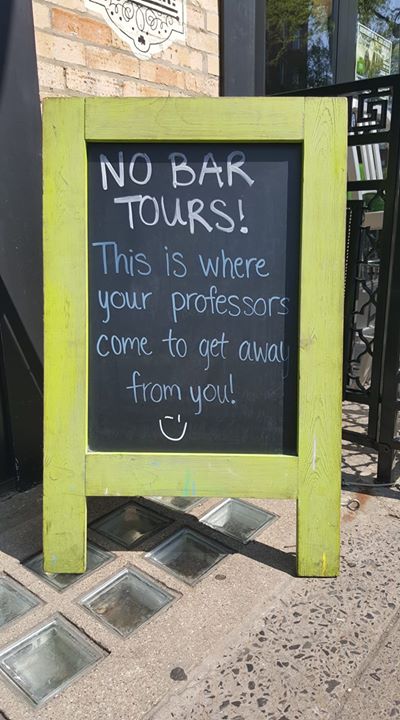 NO BAR
TOURS!
This is where
your professors
come to get away
from you!